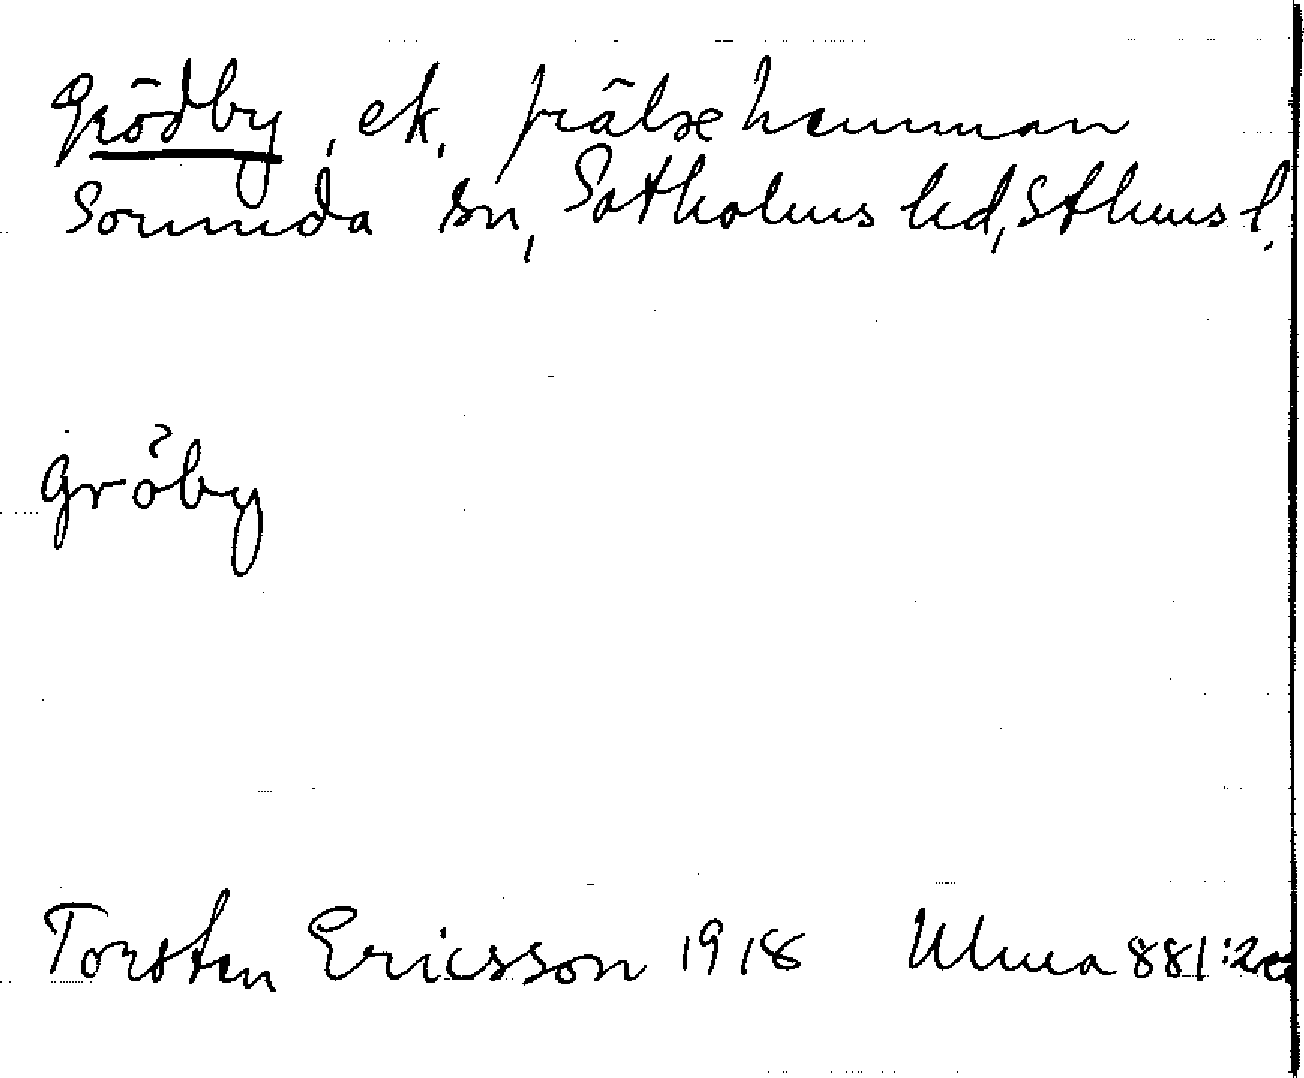 Grödby, ek. frälsehemman
Sorunda sn, Sotholms hd, Sthms l.
gröby
Torsten Ericsson 1918 Ulma 881:2